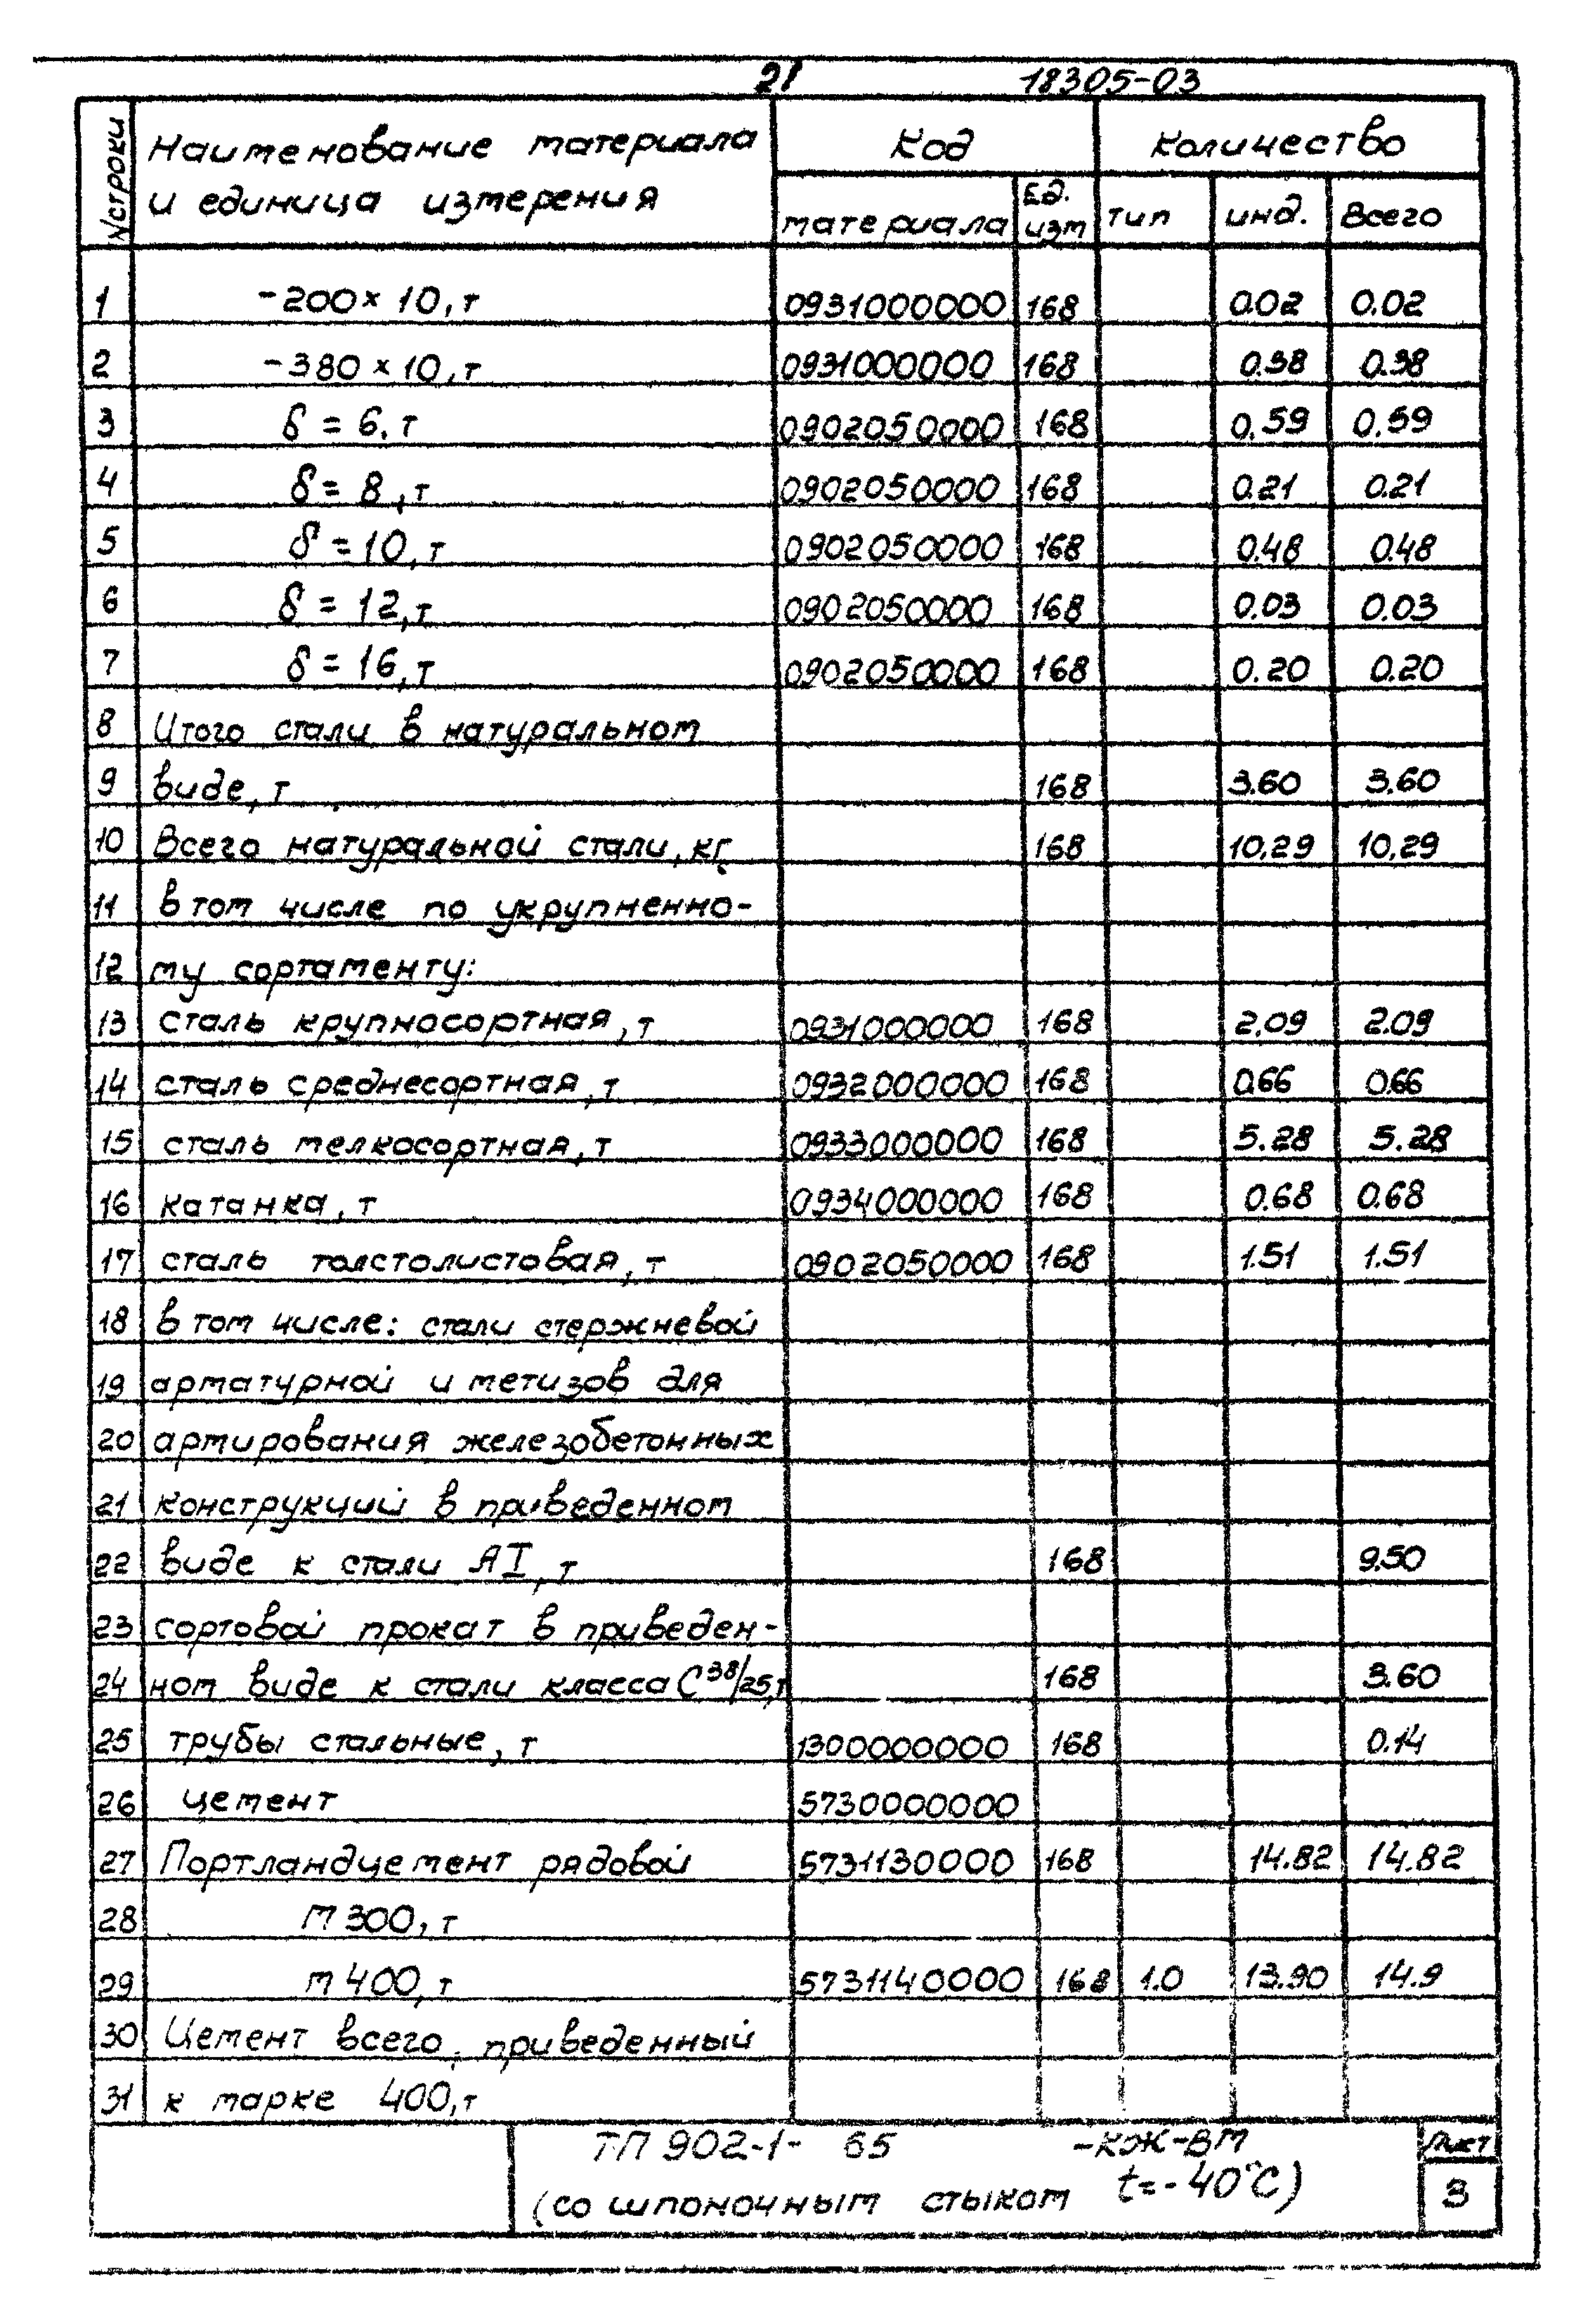 21 18305-03
№ строки Наименование материала Код Количество
и единица измерения материала Ед. изм тип инд. Всего
1 -200×10, т 0931000000 168 0.02 0.02
2 -380×10, т 0931000000 168 0.38 0.38
3 δ = 6, т 0902050000 168 0.59 0.59
4 δ = 8, т 0902050000 168 0.21 0.21
5 δ = 10, т 0902050000 168 0.48 0.48
6 δ = 12, т 0902050000 168 0.03 0.03
7 δ = 16, т 0902050000 168 0.20 0.20
8 Итого стали в натуральном
9 виде, т 168 3.60 3.60
10 Всего натуральной стали, кг 168 10.29 10.29
11 в том числе по укрупненно-
12 му сортаменту:
13 сталь крупносортная, т 0931000000 168 2.09 2.09
14 сталь среднесортная, т 0932000000 168 0.66 0.66
15 сталь мелкосортная, т 0933000000 168 5.28 5.28
16 катанка, т 0934000000 168 0.68 0.68
17 сталь толстолистовая, т 0902050000 168 1.51 1.51
18 в том числе: стали стержневой
19 арматурной и метизов для
20 армирования железобетонных
21 конструкций в приведенном
22 виде к стали АI, т 168 9.50
23 сортовой прокат в приведен-
24 ном виде к стали класса С38/25, т 168 3.60
25 трубы стальные, т 1300000000 168 0.14
26 цемент 5730000000
27 Портландцемент рядовой 5731130000 168 14.82 14.82
28 М 300, т
29 М 400, т 5731140000 168 1.0 13.90 14.9
30 Цемент всего, приведенный
31 к марке 400, т
ТП 902-1- 65 -КЖ-ВМ Лист
(со шпоночным стыком t=-40°С) 3